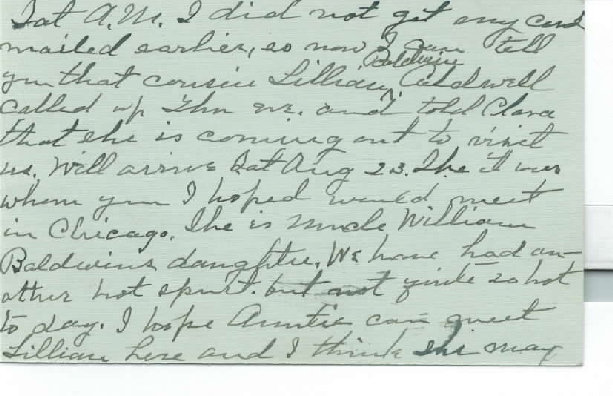 Sat A.M. I did not get my card
mailed earlier, so now I can tell
you that cousin Lillian Baldwin Caldwell
called up Thu eve. and told Clara
that she is coming out to visit
us. Will arrive Sat Aug 23. She it was
whom you I hoped would meet
in Chicago. She is Uncle William
Baldwins daughter. We have had an-
other hot spurt. but not quite so hot
to day. I hope Auntie can meet
Lillian here and I think she may